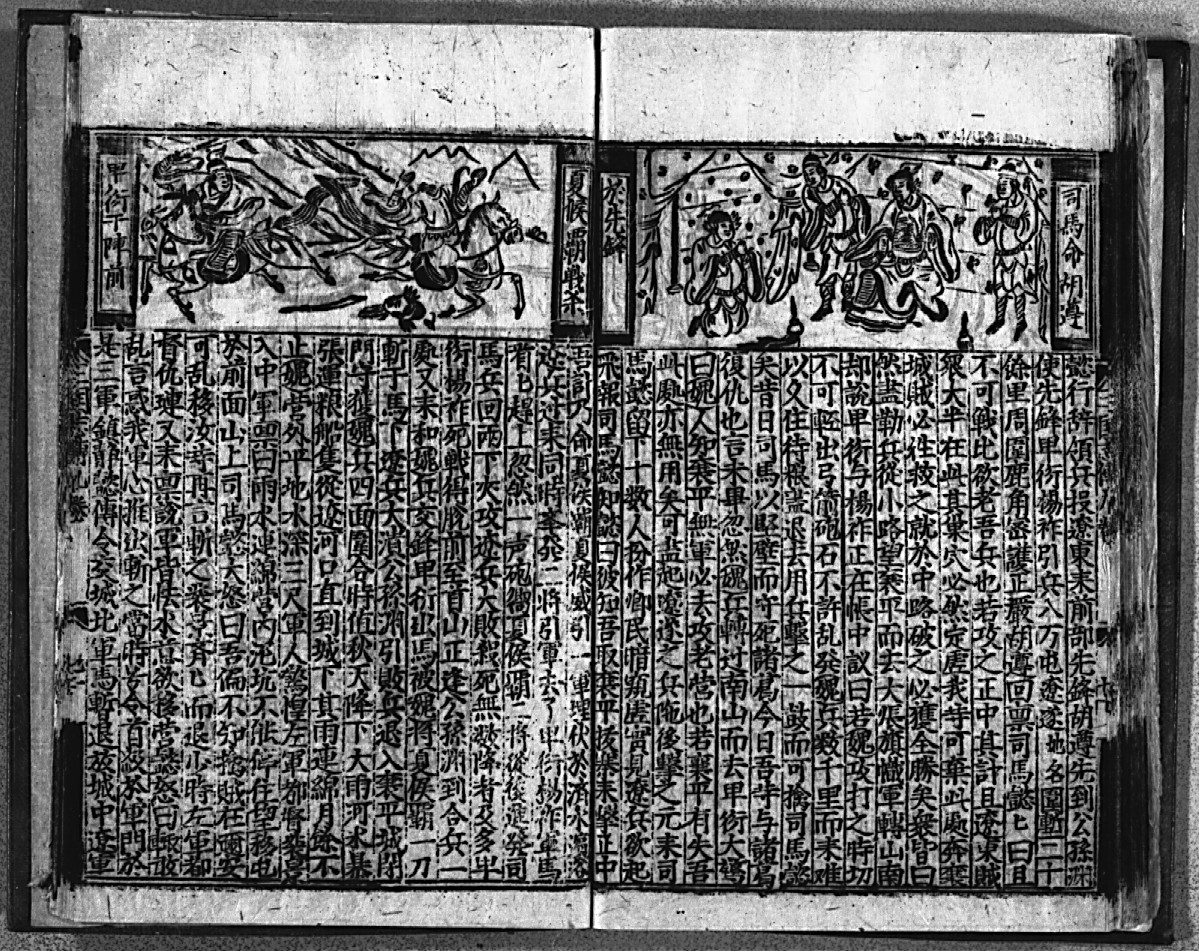 司馬命胡遵
於先鋒
懿行辞領兵投遼東來前部先鋒胡遵先到公孫渊
使先鋒卑衍楊祚引兵八万屯遼遂地名圍塹二十
餘里周圍鹿角密護正嚴胡遵回禀司馬懿匕曰且
不可戰比欲老吾兵也若攻之正中其計且遼東賊
衆大半在此其巢穴必然空虚我等可棄此處奔襄
城賊必往救之就於中路破之必獲全勝矣衆皆曰
然盡勒兵從小路望襄平而去大張旗幟軍轉山南
却說卑衍与楊祚正在帳中議曰若魏攻打之時切
不可輕出弓箭砲石不許乱發魏兵數千里而来难
以久住待粮盡退去用兵驅之一鼓而可擒司馬懿
矣昔日司馬以堅壁而守死諸葛今日吾等与諸葛
復仇也言未畢忽然魏兵轉过南山而去卑衍大驚
曰魏人知襄平無軍必去攻老營也若襄平有失吾
此處亦無用矣可盡起遼遂之兵随後擊之元来司
馬懿留下十數人扮作鄉民暗窺虚實見遼兵欲起
飛報司馬懿知懿曰彼知吾取襄平拔寨来擊正中
夏侯霸戰杀
卑衍于陣前
吾計乃命夏侯霸夏侯威引一軍埋伏於濟水
遼兵过来同時二將引軍去了卑衍楊祚軍馬
匕趕上忽然一声砲响夏侯霸二將從後進發司
馬兵回兩下夾攻遼兵大敗殺死無數降者及多卑
衍楊祚死戰得脫前至首山正逢公孫渊到合兵一
處又来和魏兵交鋒卑衍出馬被魏將夏侯霸一刀
斬于馬下遼兵大潰公孫渊引敗兵退入襄平城閉
門守護魏兵四面圍合時值秋天降下大雨河水暴
張運粮船隻從遼河口直到城下其雨連綿月餘不
止魏營外平地水深三尺軍人驚惶左軍都督裴景
入中軍禀曰雨水連綿營內泥坑不能停住望移屯
於前面山上司馬懿大怒曰吾偏不知擒賊在邇安
可乱移汝等再言斬之裴景喏匕而退少時左軍都
督仇璉又来禀說軍皆怯水意欲移營懿怒曰輒敢
乱言惑我軍心推出斬之當時号令首級於軍門於
是三軍鎮靜懿傳令交城北軍馬暫退放城中遼軍